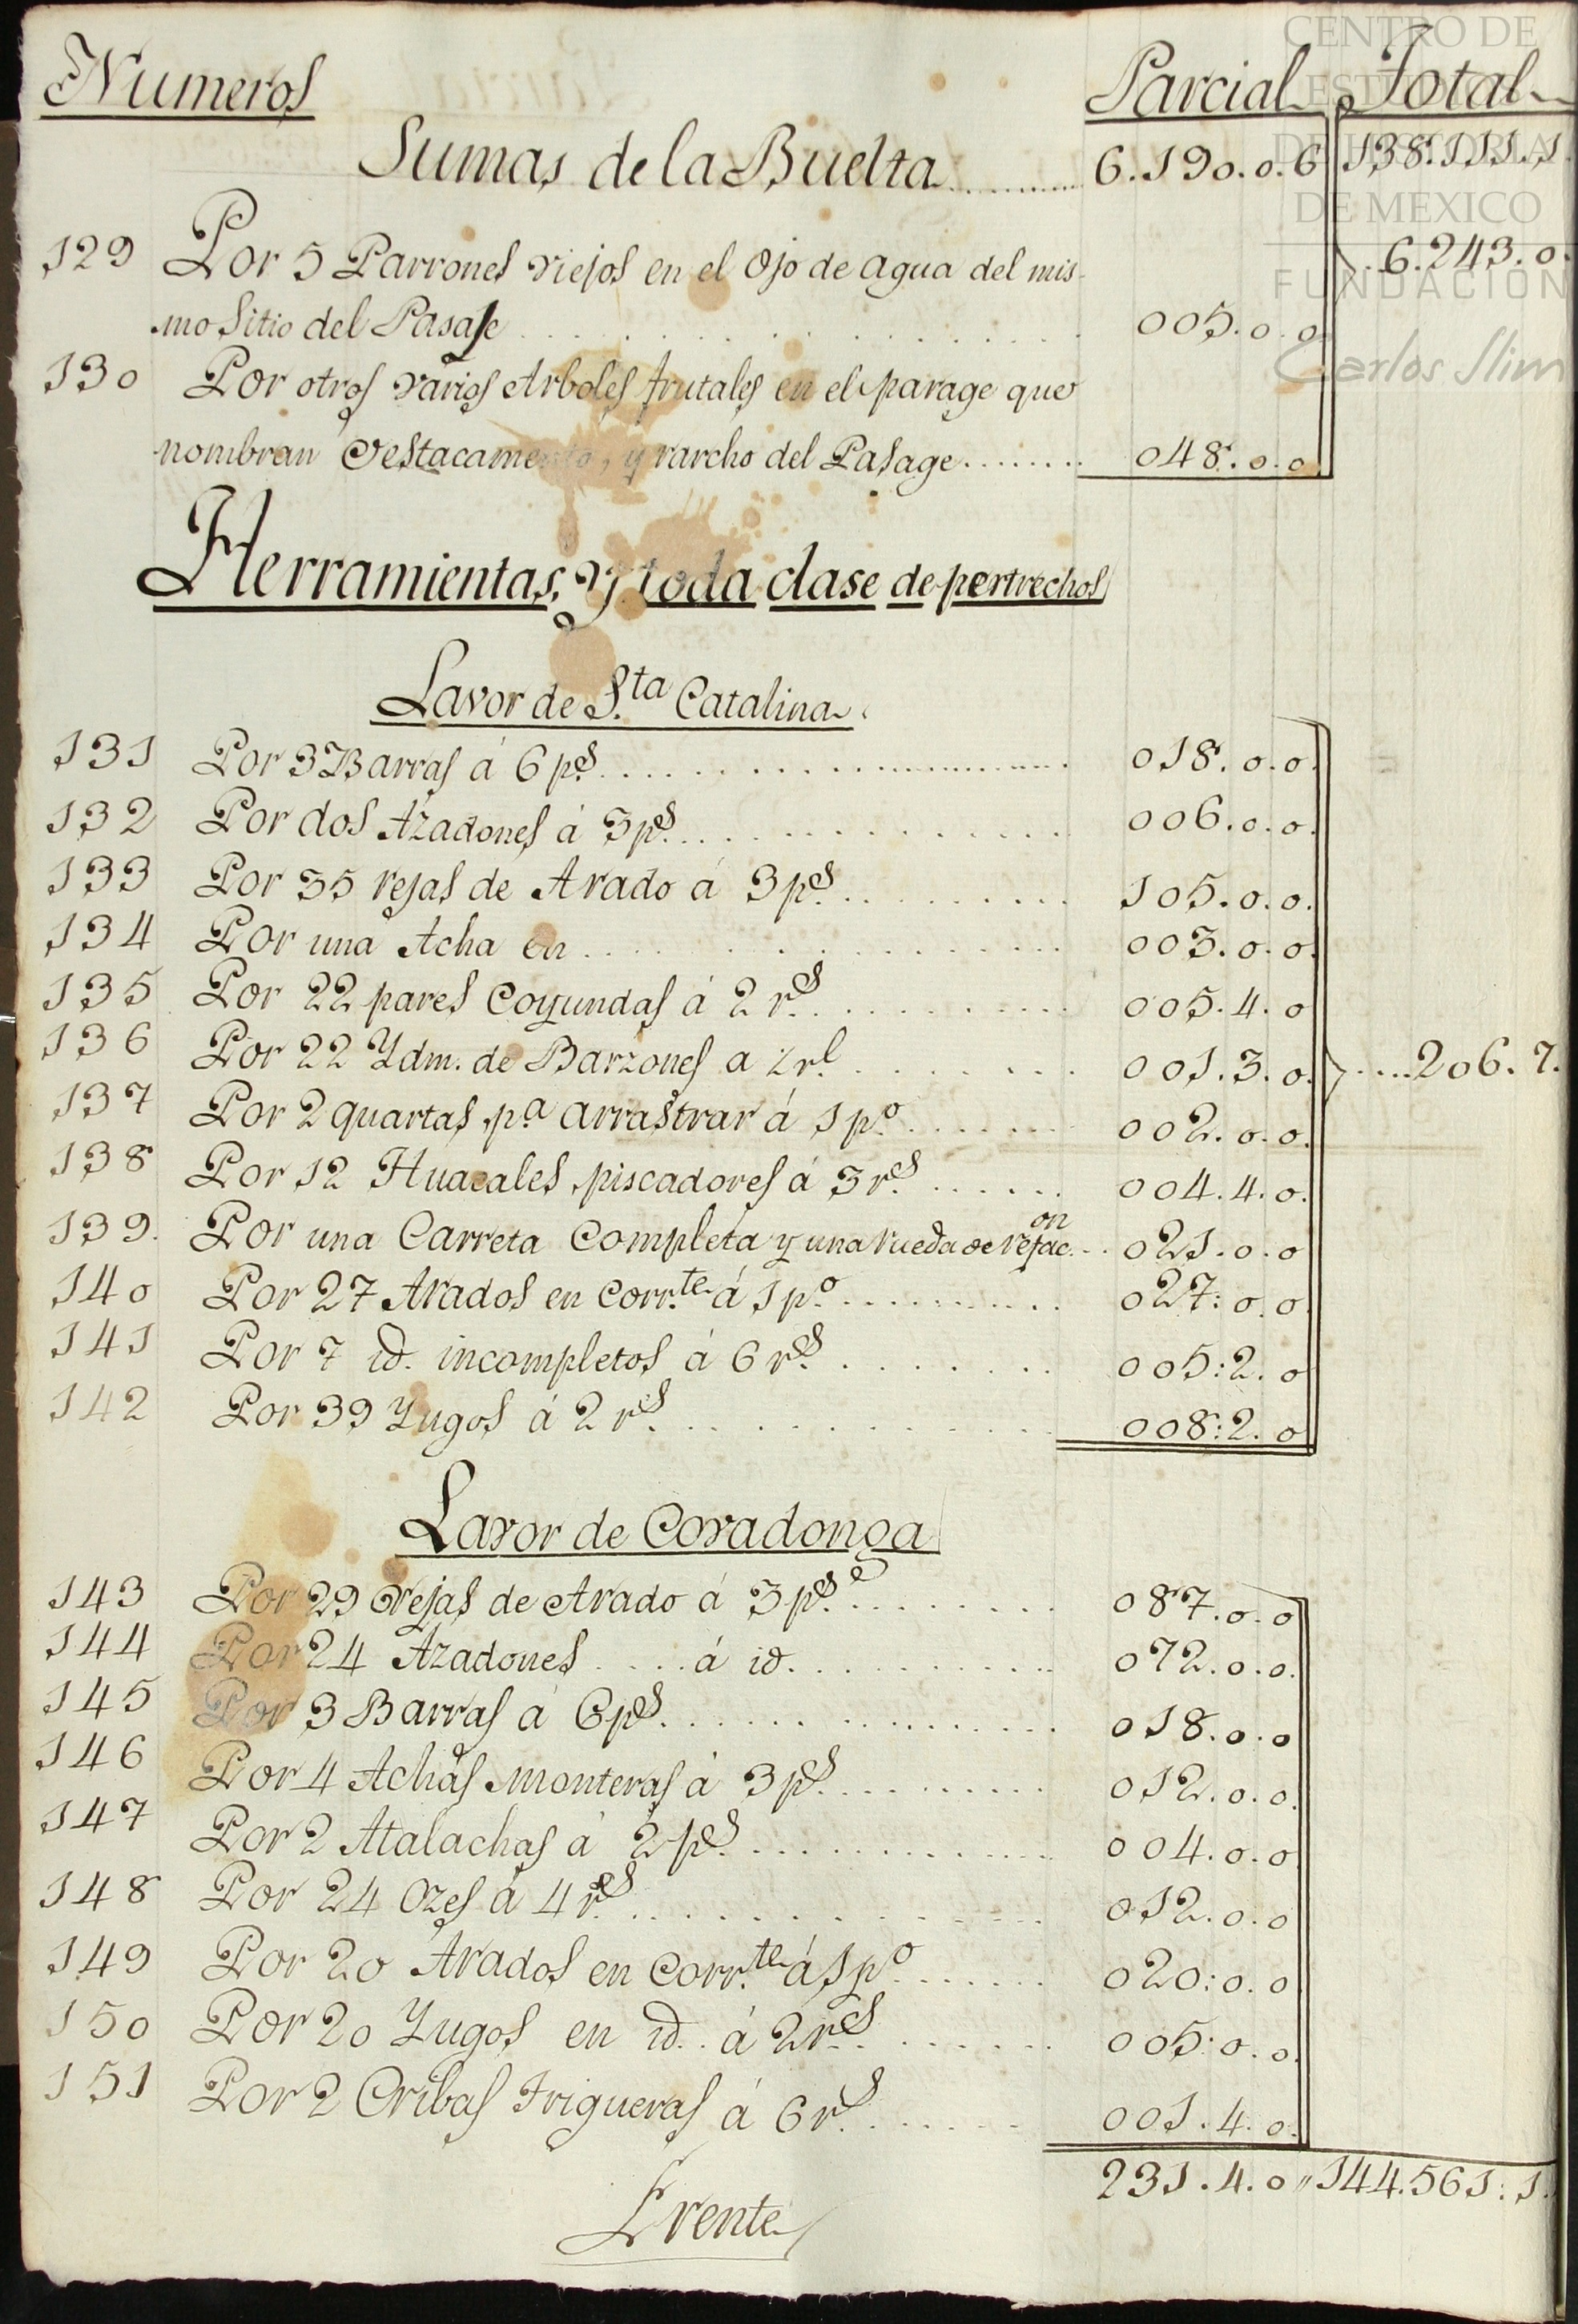 Numeros Parcial Total
Sumas de la Buelta 6.190.0.6 138.111.1.
129 Por 5 Parrones viejos en el Ojo de agua del mis-
6.243.0.
mo Sitio del Pasaje 005.0.0
130 Por otros varios Arboles frutales en el parage que
nombran Destacamento, y rancho del Pasage 048.0.0
Herramientas, y toda clase de pertrechos
Lavor de S.ta Catalina
131 Por 3 Barras á 6 p.s 018.0.0.
132 Por dos Azadones á 3 p.s 006.0.0.
133 Por 35 rejas de Arado á 3 p.s 105.0.0.
134 Por una Acha en 003.0.0.
135 Por 22 pares Coyundas á 2 r.s 005.4.0
136 Por 22 Ydm. de Barzones a ½ r.l 001.3.0. 206.7.
137 Por 2 quartas p.a arrastrar á 1 p.o 002.0.0.
138 Por 12 Huacales piscadores á 3 r.s 004.4.0.
139. Por una Carreta Completa y una rueda de refac.on 021.0.0
140 Por 27 Arados en corr.te á 1 p.o 027:0.0
141 Por 7 id. incompletos á 6 r.s 005:2.0
142 Por 39 Yugos á 2 r.s 008:2.0
Lavor de Covadonga
143 Por 29 rejas de Arado á 3 p.s 087.0.0
144 Por 24 Azadones á id. 072.0.0.
145 Por 3 Barras á 6 p.s 018.0.0
146 Por 4 Achas monteras á 3 p.s 012.0.0.
147 Por 2 Atalachas á 2 p.s 004.0.0
148 Por 24 Ozes á 4 r.s 012.0.0
149 Por 20 Arados en corr.te á 1 p.o 020:0.0
150 Por 20 Yugos en id. á 2 r.s 005:0.0.
151 Por 2 Cribas Trigueras á 6 r.s 001.4.0.
231.4.0 " 144.561:1.
Frente
CENTRO DE
ESTUDIOS
DE HISTORIA
DE MEXICO
FUNDACIÓN
Carlos Slim